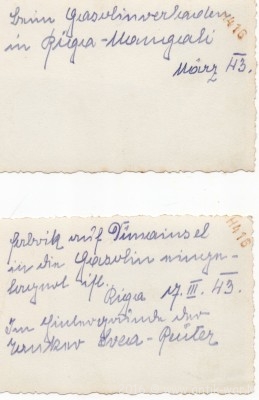 beim Gasolinverladen
in Riga-Mangali
März 43.
1416
auf Dünainsel
in die Gasolin einge-
lagert ist.
Riga 17. III. 43.
Im Hintergrunde der
Tanker Svea-Reuter
1416